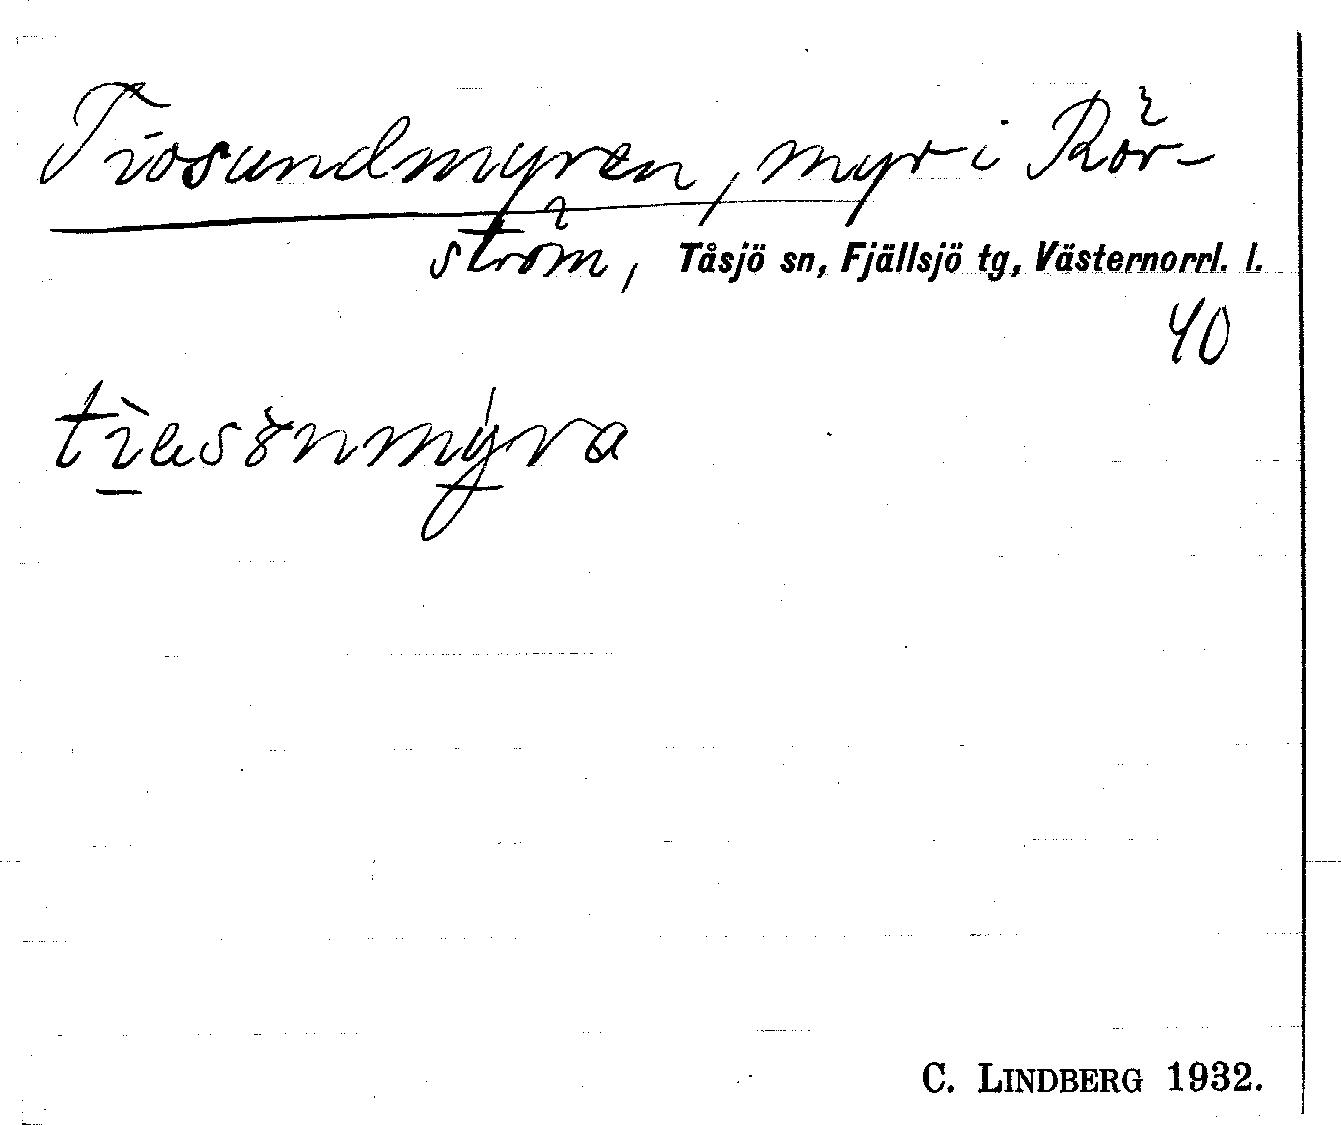 Tiosundmyren, myr i Rör-
ström, Tåsjö sn, Fjällsjö tg, Västernorrl. l.
40
C. LINDBERG 1932.